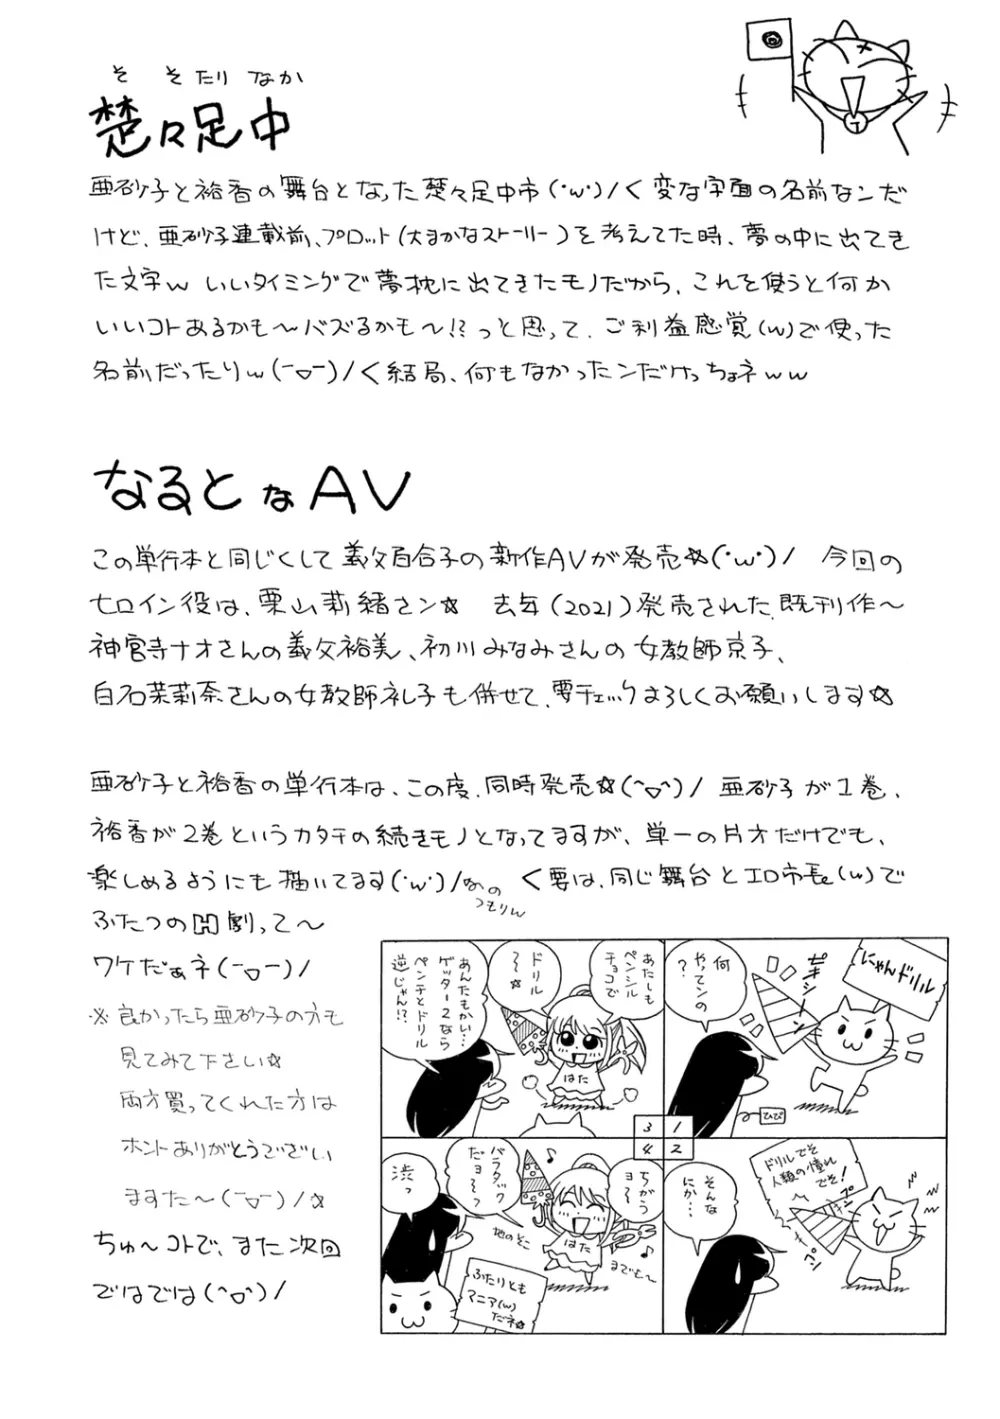 そ そ たり なか
楚々足中
亜砂子と裕香の舞台となった楚々足中市(・w・)/く 変な字面の名前なンだ
けど、亜砂子連載前、プロット(大まかなストーリー)を考えてた時、夢の中に出てき
た文字w いいタイミングで夢枕に出てきたモノだから、これを使うと何か
いいコトあるかも〜バズるかも〜!?っと思って、ご利益感覚(w)で使った
名前だったりw(ー▽ー)/く結局、何もなかったンだけっちょネww
なるとなAV
この単行本と同じくして義父百合子の新作AVが発売☆(・w・)/ 今回の
ヒロイン役は、栗山莉緒さン☆ 去年(2021)発売された、既刊作〜
神宮寺ナオさんの義父裕美、初川みなみさんの女教師京子、
白石茉莉奈さんの女教師礼子も併せて、要チェックよろしくお願いします☆
亜砂子と裕香の単行本は、この度、同時発売☆(^▽^)/ 亜砂子が1巻、
裕香が2巻というカタチの続きモノとなってますが、単一の片方だけでも、
楽しめるようにも描いてます(・w・)/なの く要は、同じ舞台とエロ市長(w)で
つもりw
ふたつのH劇って〜
ワケだぁネ(ー▽ー)/
※良かったら亜砂子の方も
見てみて下さい☆
両方買ってくれた方は
ホントありがとうござい
ますた〜(ー▽ー)/☆
ちゅ〜コトで、また次回
ではでは(^▽^)/
にゃんドリル
ビキシーン
何
やってンの
?
ひび
1
ドリルでそ
人類の憧れ
でそ!
そんな
にか…
2
あたしも
ペンシル
チョコで
ドリル
〜☆
あんたもかい…
ゲッター2なら
ペンチとドリル
逆じゃん!?
はた
3
ちがう
ョ〜ぅ
バラタック
だョ〜っ
渋っ
地のそこ
までも〜
はた
ふたりとも
マニア(w)
だネ☆
4